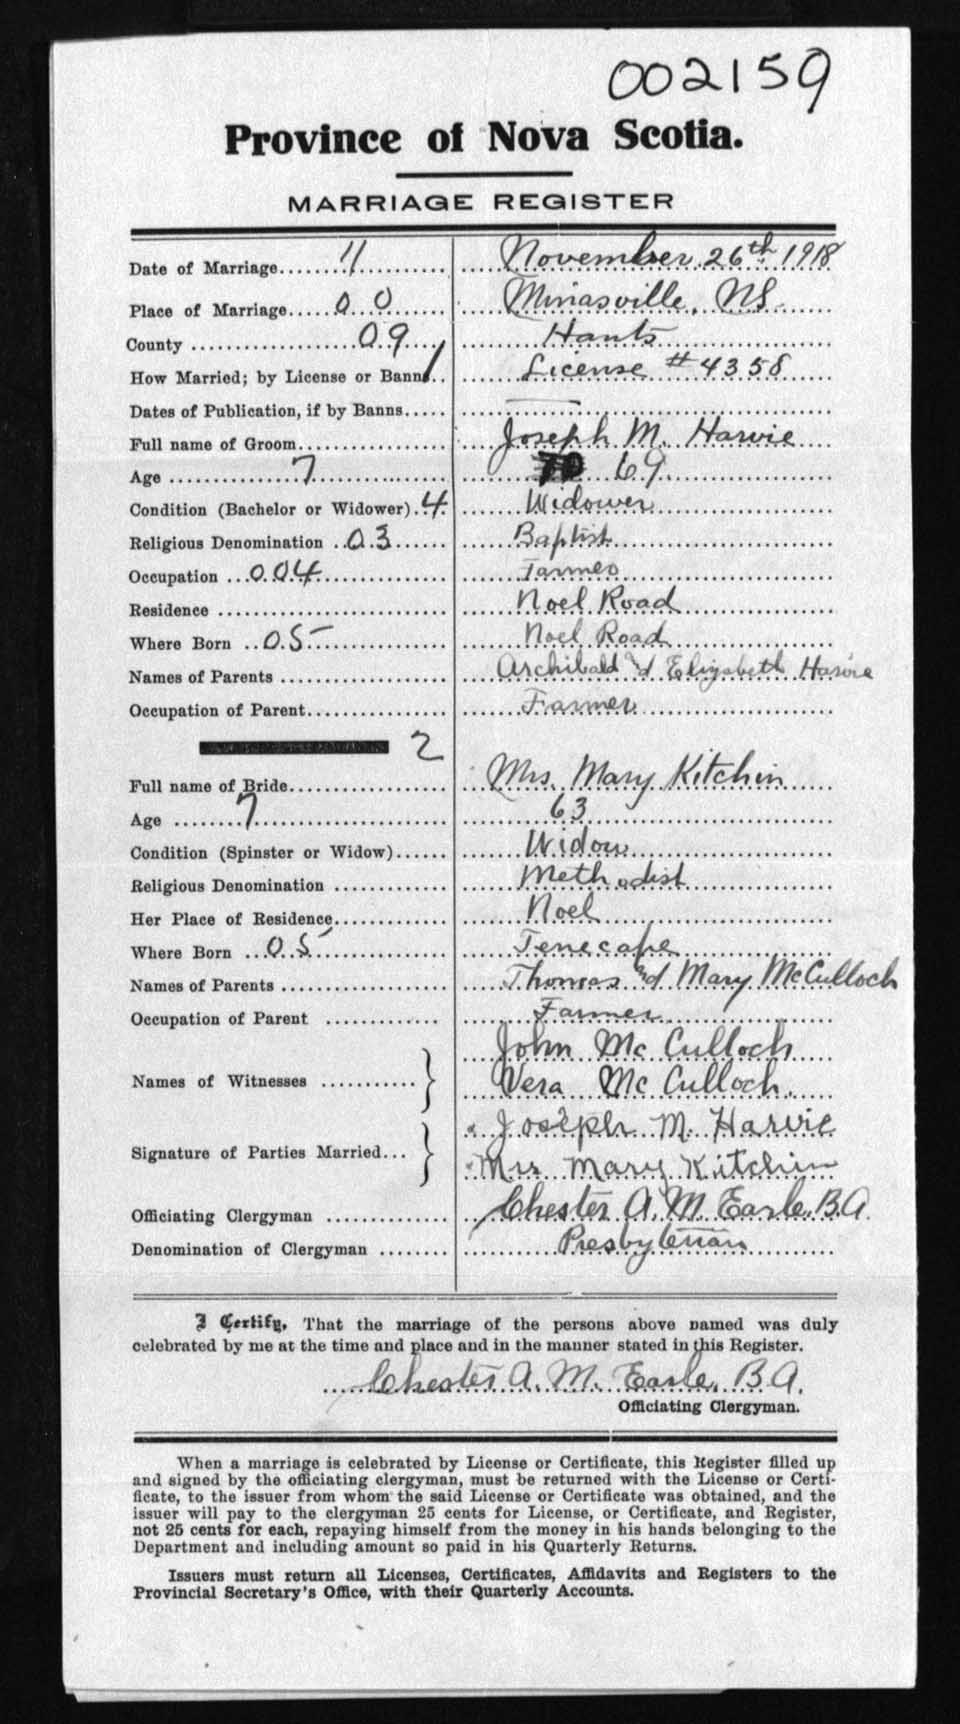 002159
Province of Nova Scotia.
MARRIAGE REGISTER
Date of Marriage 11 November 26th 1918
Place of Marriage 00 Minasville, NS.
County 09 Hants
How Married; by License or Banns 1 License #4358
Dates of Publication, if by Banns
Full name of Groom Joseph M. Harvie
Age 7 70 69
Condition (Bachelor or Widower) 4 Widower
Religious Denomination 03 Baptist
Occupation 004 Farmer
Residence Noel Road
Where Born 05 Noel Road
Names of Parents Archibald and Elizabeth Harvie
Occupation of Parent Farmer
2
Full name of Bride Mrs. Mary Kitchin
Age 7 63
Condition (Spinster or Widow) Widow
Religious Denomination Methodist
Her Place of Residence Noel
Where Born 05 Tenecape
Names of Parents Thomas and Mary McCulloch
Occupation of Parent Farmer
Names of Witnesses John McCulloch
Vera McCulloch.
Signature of Parties Married Joseph M. Harvie
Mrs. Mary Kitchin
Officiating Clergyman Chester A. M. Earle, B.A.
Denomination of Clergyman Presbyterian
I Certify, That the marriage of the persons above named was duly
celebrated by me at the time and place and in the manner stated in this Register.
Chester A. M. Earle, B.A.
Officiating Clergyman.
When a marriage is celebrated by License or Certificate, this Register filled up
and signed by the officiating clergyman, must be returned with the License or Certi-
ficate, to the issuer from whom the said License or Certificate was obtained, and the
issuer will pay to the clergyman 25 cents for License, or Certificate, and Register,
not 25 cents for each, repaying himself from the money in his hands belonging to the
Department and including amount so paid in his Quarterly Returns.
Issuers must return all Licenses, Certificates, Affidavits and Registers to the
Provincial Secretary's Office, with their Quarterly Accounts.